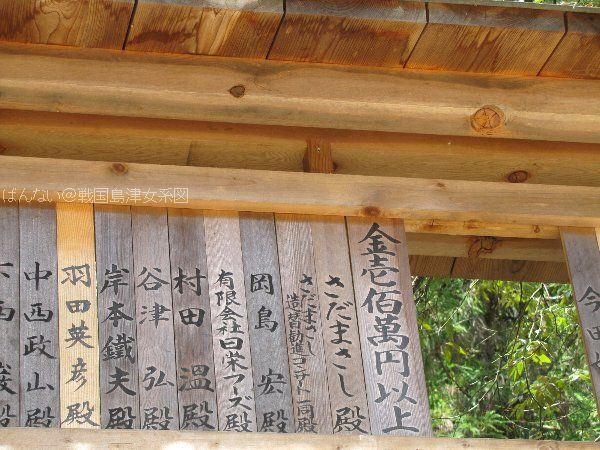 金壱佰萬円以上
さだまさし殿
さだまさし
造営勧進コンサート一同殿
岡島宏殿
有限会社日栄フーズ殿
村田温殿
谷津弘殿
岸本鐵夫殿
羽田英彦殿
中西政山殿
西
殿
今田
ばんない@戦国島津女系図